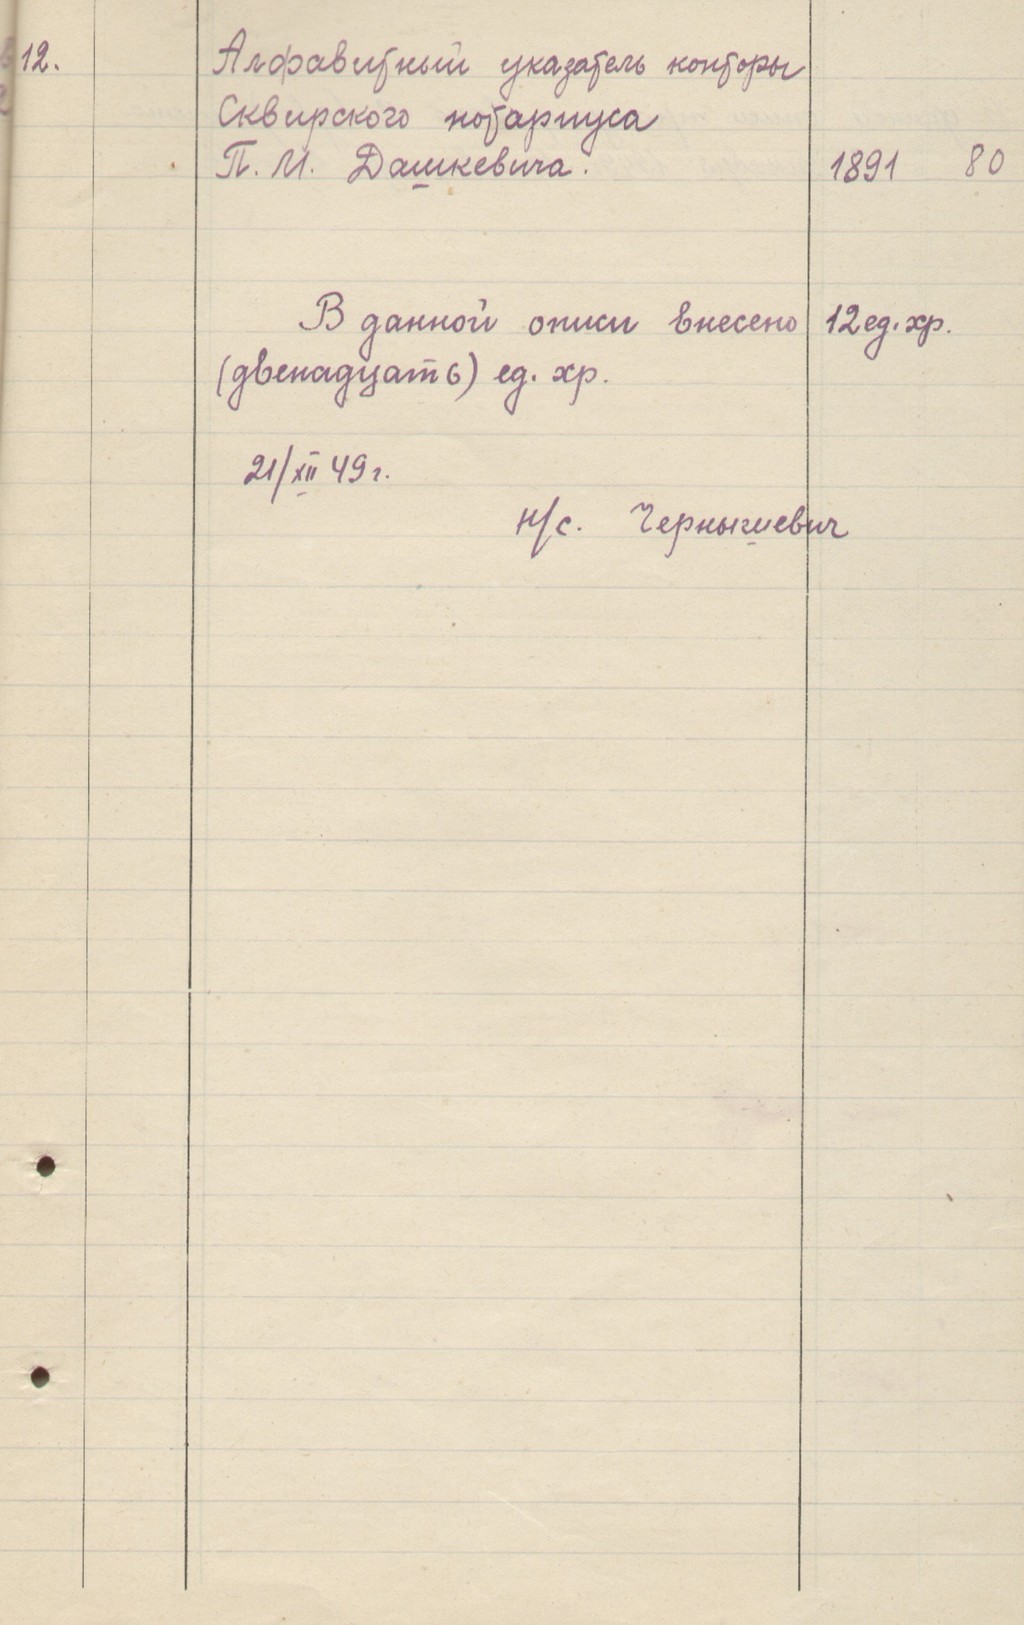 12. Алфавитный указатель конторы
Сквирского нотариуса
П. М. Дашкевича. 1891 80
В данной описи внесено 12 ед. хр.
(двенадцать) ед. хр.
21/XII 49 г.
н/с.